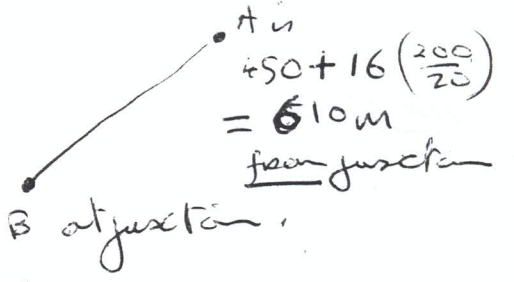 A is
450 + 16 (200/20)
= 610m
from junction
B at junction.